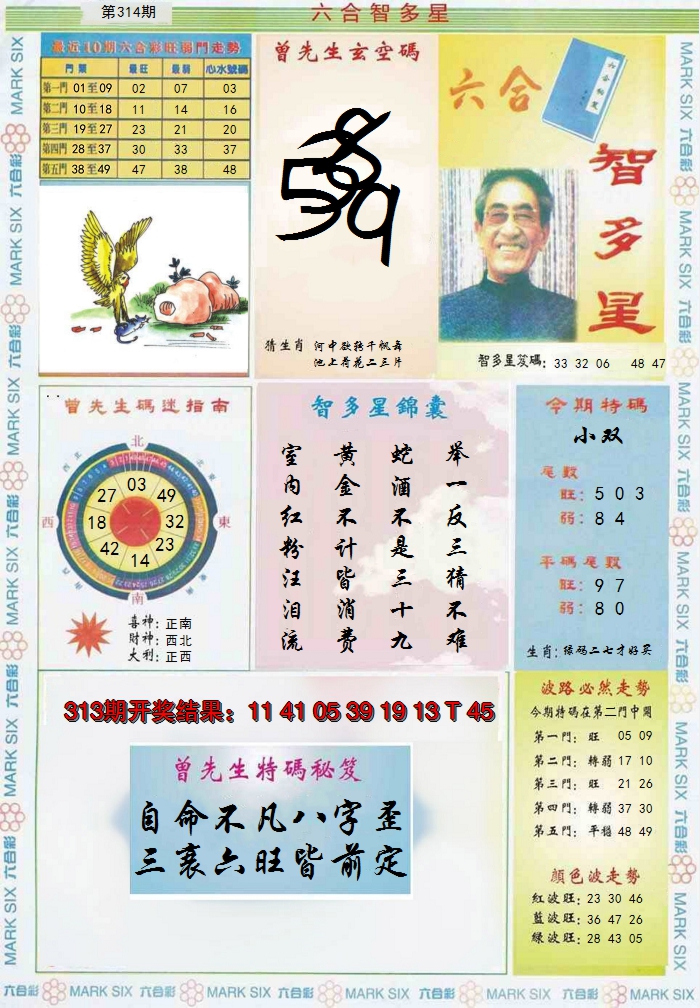 第314期
六合智多星
最近10期六合彩旺弱門走勢
門類 最旺 最弱 心水號碼
第一門 01至09 02 07 03
第二門 10至18 11 14 16
第三門 19至27 23 21 20
第四門 28至37 30 33 37
第五門 38至49 47 38 48
曾先生玄空碼
猜生肖 河中欲转千帆舞
池上荷花二三片
六合
智多星
智多星笈碼: 33 32 06 48 47
曾先生碼迷指南
北
東
南
西
03
49
32
23
14
42
18
27
喜神:正南
财神:西北
大利:正西
智多星錦囊
举一反三猜不难
蛇酒不是三十九
黄金不计皆消费
室内红粉汪泪流
今期特碼
小双
尾數
旺:503
弱:84
平碼尾數
旺:97
弱:80
生肖:绿码二七才好买
313期开奖结果:11 41 05 39 19 13 T 45
曾先生特碼秘笈
自命不凡八字歪
三衰六旺皆前定
波路必然走勢
今期特碼在第二門中開
第一門: 旺 05 09
第二門: 轉弱 17 10
第三門: 旺 21 26
第四門: 轉弱 37 30
第五門: 平穩 48 49
顔色波走勢
紅波旺: 23 30 46
藍波旺: 36 47 26
緑波旺: 28 43 05
六合彩 MARK SIX 六合彩 MARK SIX 六合彩 MARK SIX 六合彩 MARK SIX 六合彩 MARK SIX